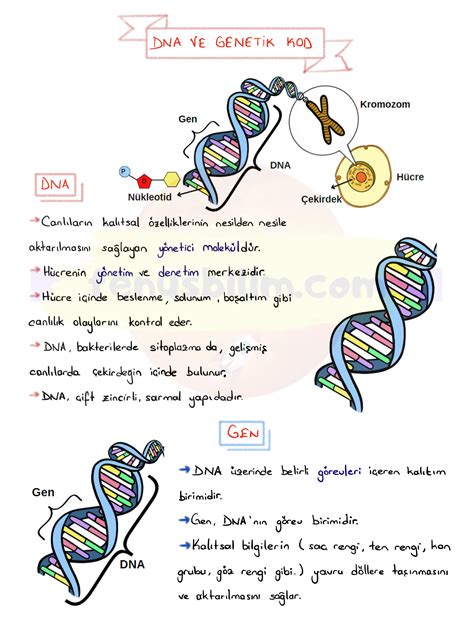 DNA VE GENETİK KOD
Gen
Kromozom
DNA
Hücre
Çekirdek
P
D
Nükleotid
DNA
→Canlıların kalıtsal özelliklerinin nesilden nesile
aktarılmasını sağlayan yönetici moleküldür.
→Hücrenin yönetim ve denetim merkezidir.
→Hücre içinde beslenme, solunum, boşaltım gibi
canlılık olaylarını kontrol eder.
→DNA, bakterilerde sitoplazma da, gelişmiş
canlılarda çekirdeğin içinde bulunur.
→DNA, çift zincirli, sarmal yapıdadır.
fenusbilim.com
GEN
Gen
DNA
→DNA üzerinde belirli görevleri içeren kalıtım
birimidir.
→Gen, DNA'nın görev birimidir.
→Kalıtsal bilgilerin ( saç rengi, ten rengi, kan
grubu, göz rengi gibi.) yavru döllere taşınmasını
ve aktarılmasını sağlar.